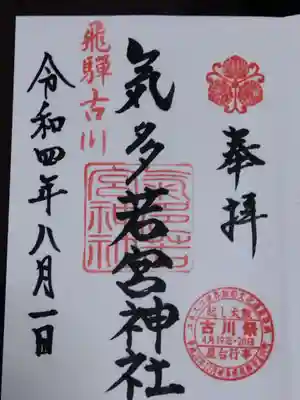 奉拝
飛騨古川
気多若宮神社
令和四年八月一日
起し太鼓
古川祭
4月19日・20日
屋台行事